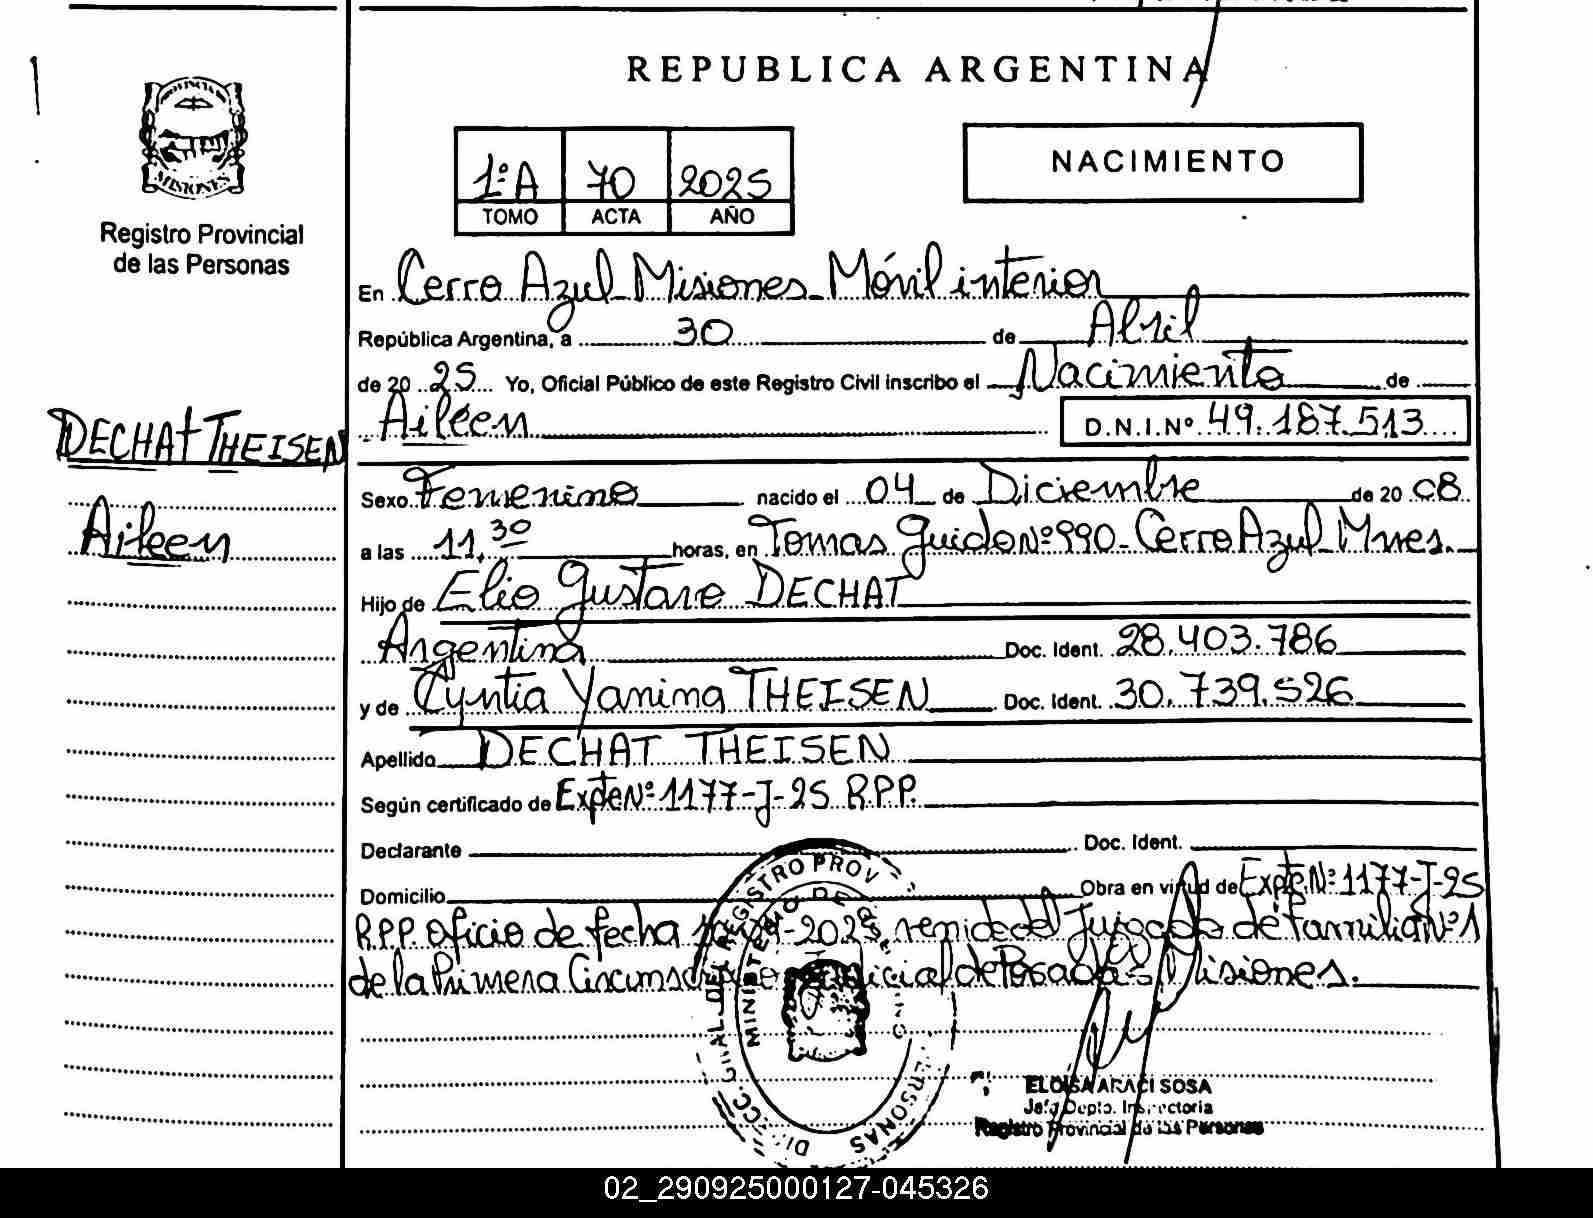 REPUBLICA ARGENTINA
MISIONES
Registro Provincial
de las Personas
1ºA 70 2025
TOMO ACTA AÑO
NACIMIENTO
En Cerro Azul - Misiones - Móvil interior
República Argentina, a 30 de Abril
de 2025 Yo, Oficial Público de este Registro Civil inscribo el Nacimiento de
Aileen
D.N.I.Nº 49.187.513
DECHAT THEISEN
Aileen
Sexo Femenino nacido el 04 de Diciembre de 2008
a las 11,30 horas, en Tomas Guido Nº 990 - Cerro Azul - Mnes.
Hijo de Elio Gustavo DECHAT
Argentina Doc. Ident. 28.403.786
y de Cyntia Yanina THEISEN Doc. Ident. 30.739.526
Apellido DECHAT THEISEN
Según certificado de Expte Nº 1177-J-25 R.P.P.
Declarante Doc. Ident.
Domicilio Obra en virtud de Expte. Nº 1177-J-25
R.P.P. Oficio de fecha 2025 del Juzgado de Familia Nº 1
de la Primera de Posadas Misiones.
ELOISA ARACI SOSA
Jefa Depto. Inspectoria
Registro Provincial de las Personas
02_290925000127-045326